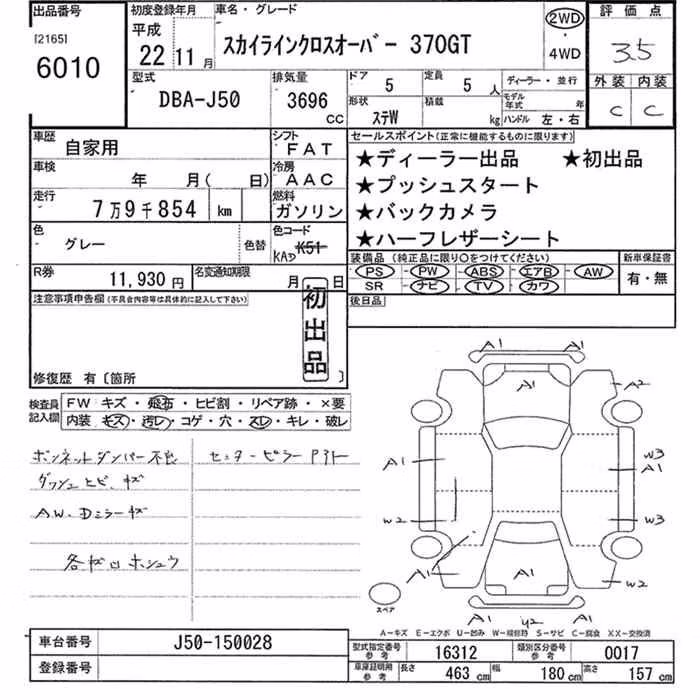 出品番号
[2165]
6010
初度登録年月
平成
22 11 月
車名・グレード
スカイラインクロスオーバー 370GT
2WD
・
4WD
評価点
3.5
外装 内装
C C
型式
DBA-J50
排気量
3696
CC
ドア
5
定員
5 人
形状
ステW
積載
kg
ディーラー・並行
モデル年式 年
ハンドル 左・右
車歴
自家用
シフト
FAT
車検
年 月( 日)
冷房
AAC
走行
7万9千854 km
燃料
ガソリン
色
グレー
色替
色コード
KAD K51
R券
11,930 円
名変通知期限
月 日
セールスポイント(正常に機能するものに限ります)
★ディーラー出品 ★初出品
★プッシュスタート
★バックカメラ
★ハーフレザーシート
装備品 (純正品に限り○をつけてください)
PS PW ABS エアB AW
SR ナビ TV カワ
新車保証書
有・無
後日品
注意事項申告欄(不具合内容等は具体的に記入して下さい)
初出品
修復歴 有〔箇所
検査員記入欄
FW キズ・飛石・ヒビ割・リペア跡・×要
内装 キズ・汚レ・コゲ・穴・スレ・キレ・破レ
ボンネットダンパー不良
センターピラーアト
ダッシュヒビ、キズ
AW、Dミラーキズ
A1
A1 A1 A1
A2
A1
W3
A1
W2
W3
A1
A1 A1
W2
A1 U2 A1
スペア
A－キズ E－エクボ U－凹み W－補修跡 S－サビ C－腐食 XX－交換済
車台番号
J50-150028
登録番号
型式指定番号
参考
16312
類別区分番号
参考
0017
車庫証明用
参考
長さ 463 cm 幅 180 cm 高さ 157 cm